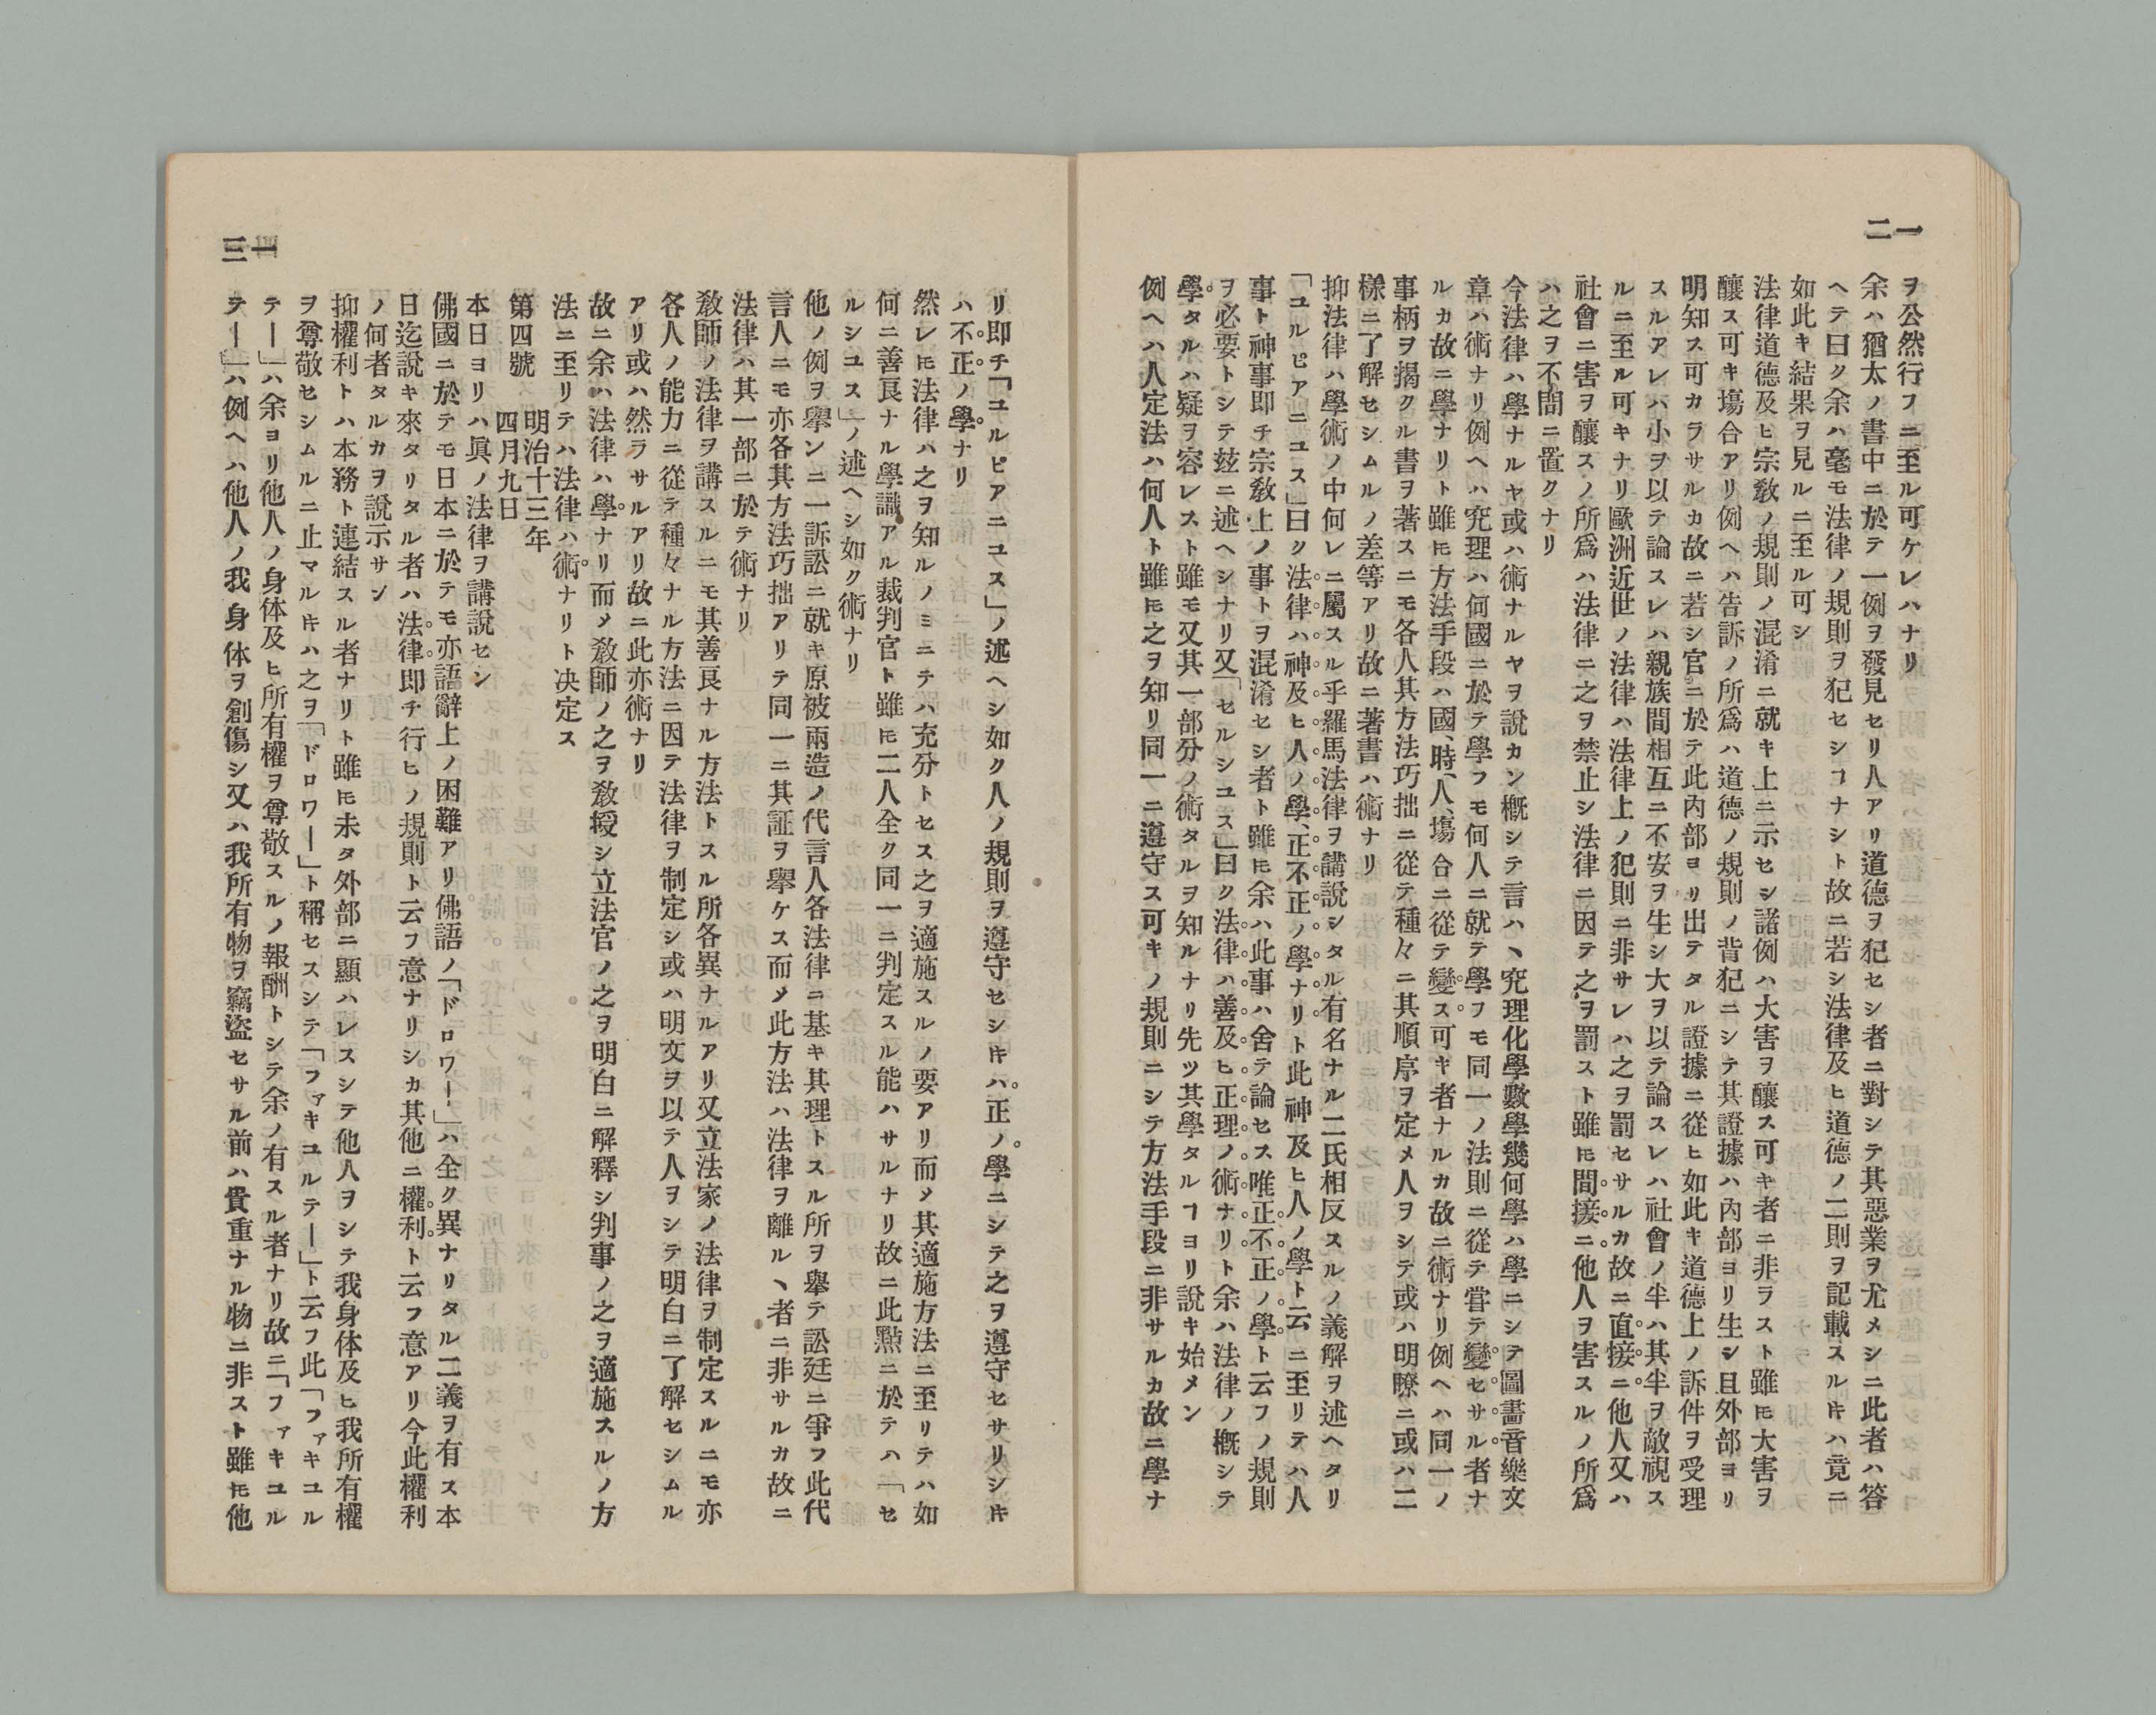 一二
ヲ公然行フニ至ル可ケレハナリ
余ハ猶太ノ書中ニ於テ一例ヲ發見セリ人アリ道德ヲ犯セシ者ニ對シテ其惡業ヲ尤メシニ此者ハ答
ヘテ曰ク余ハ毫モ法律ノ規則ヲ犯セシヿナシト故ニ若シ法律及ヒ道德ノ二則ヲ記載スルキハ竟ニ
如此キ結果ヲ見ルニ至ル可シ
法律道德及ヒ宗敎ノ規則ノ混淆ニ就キ上ニ示セシ諸例ハ大害ヲ釀ス可キ者ニ非ラスト雖𪜈大害ヲ
釀ス可キ塲合アリ例ヘハ告訴ノ所爲ハ道德ノ規則ノ背犯ニシテ其證據ハ內部ヨリ生シ且外部ヨリ
明知ス可カラサルカ故ニ若シ官ニ於テ此內部ヨリ出テタル證據ニ從ヒ如此キ道德上ノ訴件ヲ受理
スルアレハ小ヲ以テ論スレハ親族間相互ニ不安ヲ生シ大ヲ以テ論スレハ社會ノ半ハ其半ヲ敵視ス
ルニ至ル可キナリ歐洲近世ノ法律ハ法律上ノ犯則ニ非サレハ之ヲ罰セサルカ故ニ直接ニ他人又ハ
社會ニ害ヲ釀スノ所爲ハ法律ニ之ヲ禁止シ法律ニ因テ之ヲ罰スト雖𪜈間接ニ他人ヲ害スルノ所爲
ハ之ヲ不問ニ置クナリ
今法律ハ學ナルヤ或ハ術ナルヤヲ說カン槪シテ言ハヽ究理化學數學幾何學ハ學ニシテ圖畵音樂文
章ハ術ナリ例ヘハ究理ハ何國ニ於テ學フモ何人ニ就テ學フモ同一ノ法則ニ從テ嘗テ變セサル者ナ
ルカ故ニ學ナリト雖𪜈方法手段ハ國、時、人、塲合ニ從テ變ス可キ者ナルカ故ニ術ナリ例ヘハ同一ノ
事柄ヲ揭クル書ヲ著スニモ各人其方法巧拙ニ從テ種々ニ其順序ヲ定メ人ヲシテ或ハ明瞭ニ或ハ二
樣ニ了解セシムルノ差等アリ故ニ著書ハ術ナリ
抑法律ハ學術ノ中何レニ屬スル乎羅馬法律ヲ講說シタル有名ナル二氏相反スルノ義解ヲ述ヘタリ
「ユルピアニユス」曰ク法律ハ神及ヒ人ノ學、正不正ノ學ナリト此神及ヒ人ノ學ト云ニ至リテハ人
事ト神事即チ宗敎上ノ事トヲ混淆セシ者ト雖𪜈余ハ此事ハ舍テ論セス唯正不正ノ學ト云フノ規則
ヲ必要トシテ玆ニ述ヘシナリ又「セルシユス」曰ク法律ハ善及ヒ正理ノ術ナリト余ハ法律ノ槪シテ
學タルハ疑ヲ容レスト雖モ又其一部分ノ術タルヲ知ルナリ先ツ其學タルヿヨリ說キ始メン
例ヘハ人定法ハ何人ト雖𪜈之ヲ知リ同一ニ遵守ス可キノ規則ニシテ方法手段ニ非サルカ故ニ學ナ
一三
リ即チ「ユルピアニユス」ノ述ヘシ如ク人ノ規則ヲ遵守セシキハ正ノ學ニシテ之ヲ遵守セサリシキ
ハ不正ノ學ナリ
然レ𪜈法律ハ之ヲ知ルノミニテハ充分トセス之ヲ適施スルノ要アリ而メ其適施方法ニ至リテハ如
何ニ善良ナル學識アル裁判官ト雖𪜈二人全ク同一ニ判定スル能ハサルナリ故ニ此點ニ於テハ「セ
ルシユス」ノ述ヘシ如ク術ナリ
他ノ例ヲ擧ンニ一訴訟ニ就キ原被兩造ノ代言人各法律ニ基キ其理トスル所ヲ擧テ訟廷ニ爭フ此代
言人ニモ亦各其方法巧拙アリテ同一ニ其証ヲ擧ケス而メ此方法ハ法律ヲ離ルヽ者ニ非サルカ故ニ
法律ハ其一部ニ於テ術ナリ
敎師ノ法律ヲ講スルニモ其善良ナル方法トスル所各異ナルアリ又立法家ノ法律ヲ制定スルニモ亦
各人ノ能力ニ從テ種々ナル方法ニ因テ法律ヲ制定シ或ハ明文ヲ以テ人ヲシテ明白ニ了解セシムル
アリ或ハ然ラサルアリ故ニ此亦術ナリ
故ニ余ハ法律ハ學ナリ而メ敎師ノ之ヲ敎授シ立法官ノ之ヲ明白ニ解釋シ判事ノ之ヲ適施スルノ方
法ニ至リテハ法律ハ術ナリト决定ス
第四號
明治十三年
四月九日
本日ヨリハ眞ノ法律ヲ講說セン
佛國ニ於テモ日本ニ於テモ亦語辭上ノ困難アリ佛語ノ「ドロワー」ハ全ク異ナリタル二義ヲ有ス本
日迄說キ來タリタル者ハ法律即チ行ヒノ規則ト云フ意ナリシカ其他ニ權利ト云フ意アリ今此權利
ノ何者タルカヲ說示サン
抑權利トハ本務ト連結スル者ナリト雖𪜈未タ外部ニ顯ハレスシテ他人ヲシテ我身体及ヒ我所有權
ヲ尊敬セシムルニ止マルキハ之ヲ「ドロワー」ト稱セスシテ「ファキユルテー」ト云フ此「ファキユル
テー」ハ余ヨリ他人ノ身体及ヒ所有權ヲ尊敬スルノ報酬トシテ余ノ有スル者ナリ故ニ「ファキユル
テー」ハ例ヘハ他人ノ我身体ヲ創傷シ又ハ我所有物ヲ竊盜セサル前ハ貴重ナル物ニ非スト雖𪜈他